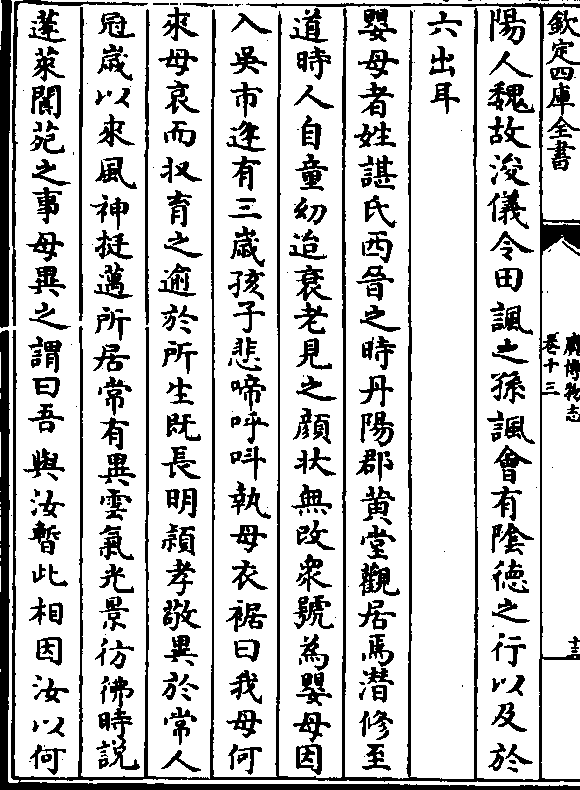 欽定四庫全書
廣博物志
卷十三
陽人魏故浚儀令田諷之孫諷會有陰德之行以及於
六出耳
嬰母者姓諶氏西晉之時丹陽郡黄堂觀居焉潜修至
道時人自童幼迨衰老見之顔狀無改衆號為嬰母因
入吳市逢有三歳孩子悲啼呼呌執母衣裾曰我母何
來母哀而収育之逾於所生既長明頴孝敬異於常人
冠歳以來風神挺邁所居常有異雲氣光景彷彿時説
蓬萊閬苑之事母異之謂曰吾與汝暫此相因汝以何